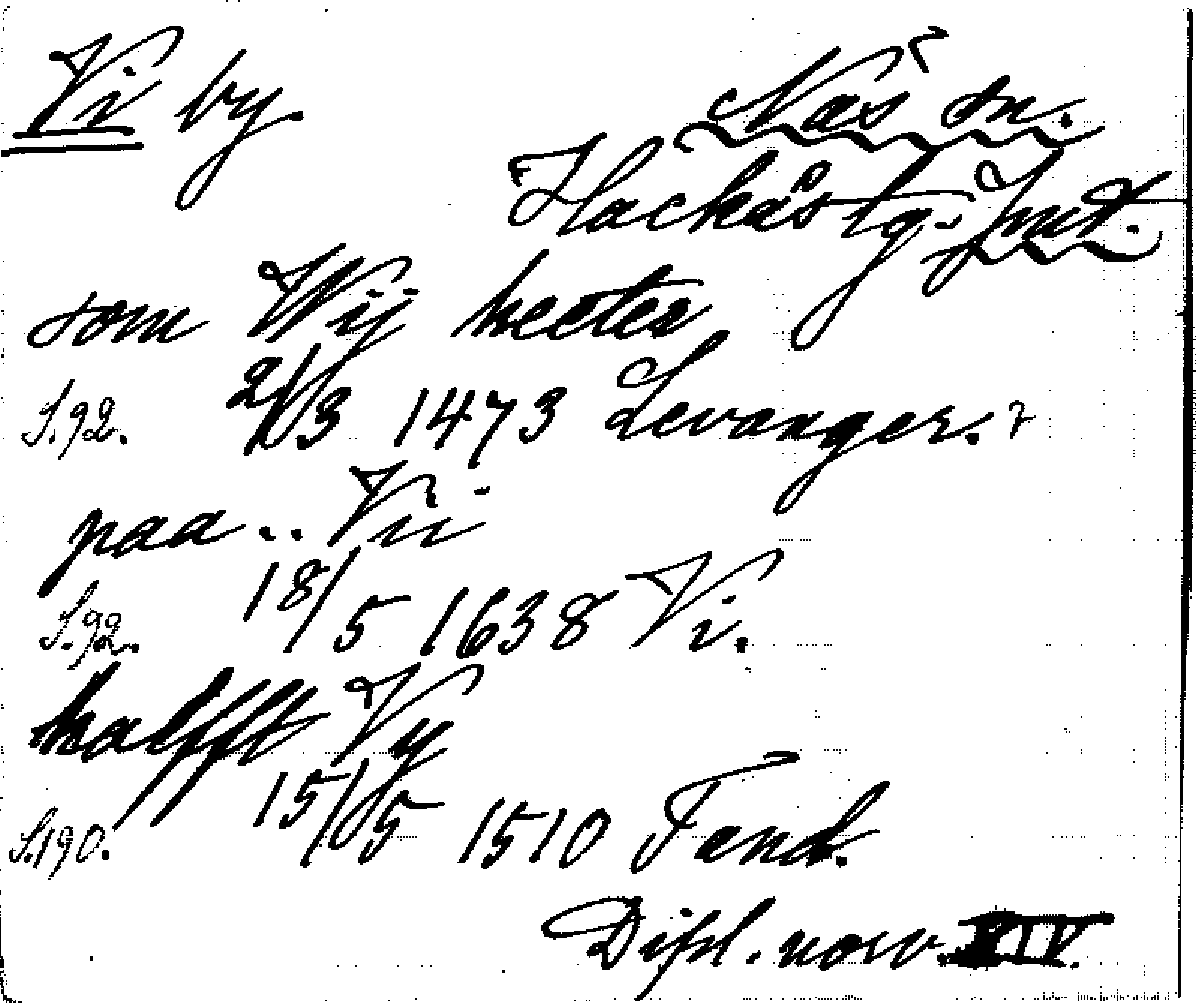 Vi by. Näs sn.
Hackås tg. Jmt.
som Wij heeter
S.92. 21/3 1473 Levanger.
paa .. Vii
S.92. 18/5 1638 Vi.
halfft Vy
S.190. 15/5 1510 Fand.
Dipl. norv. XIV.